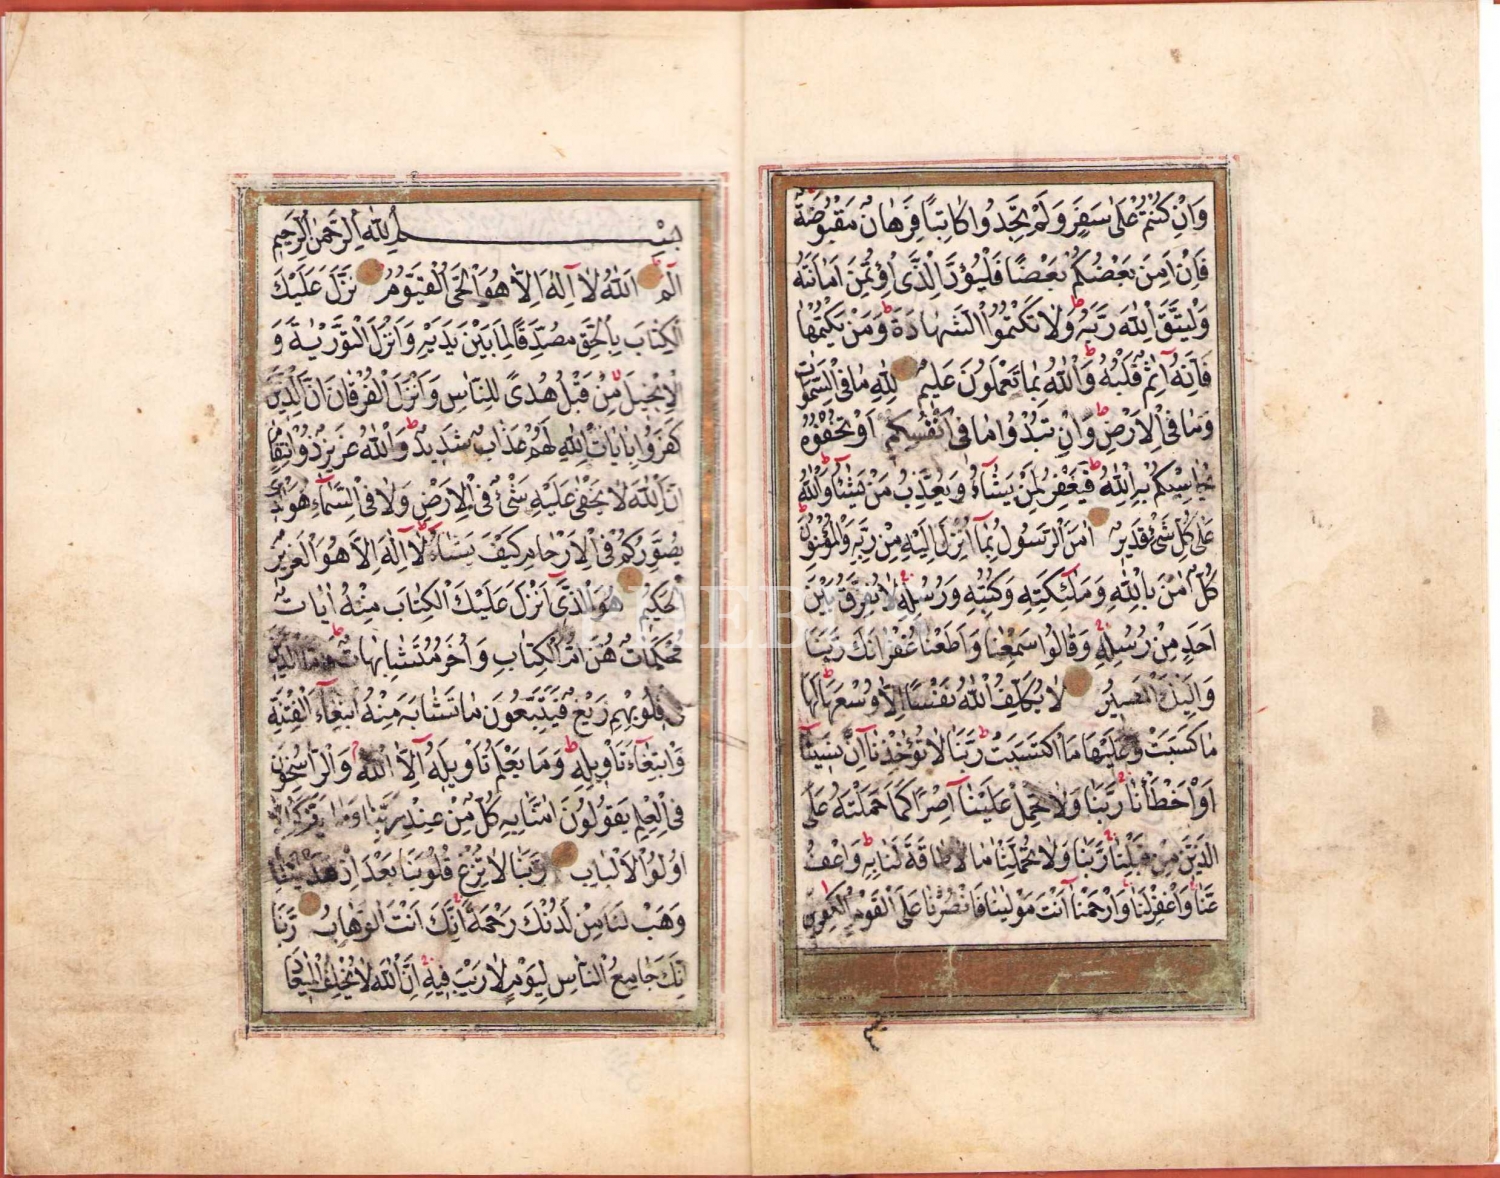 وَاِنْ كُنْتُمْ عَلٰى سَفَرٍ وَلَمْ تَجِدُوا كَاتِبًا فَرِهَانٌ مَقْبُوضَةٌ
فَاِنْ اَمِنَ بَعْضُكُمْ بَعْضًا فَلْيُؤَدِّ الَّذِى اؤْتُمِنَ اَمَانَتَهُ
وَلْيَتَّقِ اللّٰهَ رَبَّهُ وَلَا تَكْتُمُوا الشَّهَادَةَ وَمَنْ يَكْتُمْهَا
فَاِنَّهُ آثِمٌ قَلْبُهُ وَاللّٰهُ بِمَا تَعْمَلُونَ عَلِيمٌ لِلّٰهِ مَا فِى السَّمٰوَاتِ
وَمَا فِى الْاَرْضِ وَاِنْ تُبْدُوا مَا فِى اَنْفُسِكُمْ اَوْ تُخْفُوهُ
يُحَاسِبْكُمْ بِهِ اللّٰهُ فَيَغْفِرُ لِمَنْ يَشَآءُ وَيُعَذِّبُ مَنْ يَشَآءُ وَاللّٰهُ
عَلٰى كُلِّ شَىْءٍ قَدِيرٌ اٰمَنَ الرَّسُولُ بِمَآ اُنْزِلَ اِلَيْهِ مِنْ رَبِّهِ وَالْمُؤْمِنُونَ
كُلٌّ اٰمَنَ بِاللّٰهِ وَمَلٰٓئِكَتِهِ وَكُتُبِهِ وَرُسُلِهِ لَا نُفَرِّقُ بَيْنَ
اَحَدٍ مِنْ رُسُلِهِ وَقَالُوا سَمِعْنَا وَاَطَعْنَا غُفْرَانَكَ رَبَّنَا
وَاِلَيْكَ الْمَصِيرُ لَا يُكَلِّفُ اللّٰهُ نَفْسًا اِلَّا وُسْعَهَا لَهَا
مَا كَسَبَتْ وَعَلَيْهَا مَا اكْتَسَبَتْ رَبَّنَا لَا تُؤَاخِذْنَآ اِنْ نَسِينَآ
اَوْ اَخْطَأْنَا رَبَّنَا وَلَا تَحْمِلْ عَلَيْنَآ اِصْرًا كَمَا حَمَلْتَهُ عَلَى
الَّذِينَ مِنْ قَبْلِنَا رَبَّنَا وَلَا تُحَمِّلْنَا مَا لَا طَاقَةَ لَنَا بِهِ وَاعْفُ
عَنَّا وَاغْفِرْ لَنَا وَارْحَمْنَآ اَنْتَ مَوْلٰينَا فَانْصُرْنَا عَلَى الْقَوْمِ الْكَافِرِينَ
بِسْمِ اللّٰهِ الرَّحْمٰنِ الرَّحِيمِ
الٓمٓ اَللّٰهُ لَآ اِلٰهَ اِلَّا هُوَ الْحَىُّ الْقَيُّومُ نَزَّلَ عَلَيْكَ
الْكِتَابَ بِالْحَقِّ مُصَدِّقًا لِمَا بَيْنَ يَدَيْهِ وَاَنْزَلَ التَّوْرٰيةَ وَ
الْاِنْجِيلَ مِنْ قَبْلُ هُدًى لِلنَّاسِ وَاَنْزَلَ الْفُرْقَانَ اِنَّ الَّذِينَ
كَفَرُوا بِاٰيَاتِ اللّٰهِ لَهُمْ عَذَابٌ شَدِيدٌ وَاللّٰهُ عَزِيزٌ ذُو انْتِقَامٍ
اِنَّ اللّٰهَ لَا يَخْفٰى عَلَيْهِ شَىْءٌ فِى الْاَرْضِ وَلَا فِى السَّمَآءِ هُوَ الَّذِى
يُصَوِّرُكُمْ فِى الْاَرْحَامِ كَيْفَ يَشَآءُ لَآ اِلٰهَ اِلَّا هُوَ الْعَزِيزُ
الْحَكِيمُ هُوَ الَّذِىٓ اَنْزَلَ عَلَيْكَ الْكِتَابَ مِنْهُ اٰيَاتٌ
مُحْكَمَاتٌ هُنَّ اُمُّ الْكِتَابِ وَاُخَرُ مُتَشَابِهَاتٌ فَاَمَّا الَّذِينَ
فِى قُلُوبِهِمْ زَيْغٌ فَيَتَّبِعُونَ مَا تَشَابَهَ مِنْهُ ابْتِغَآءَ الْفِتْنَةِ
وَابْتِغَآءَ تَأْوِيلِهِ وَمَا يَعْلَمُ تَأْوِيلَهُٓ اِلَّا اللّٰهُ وَالرَّاسِخُونَ
فِى الْعِلْمِ يَقُولُونَ اٰمَنَّا بِهِ كُلٌّ مِنْ عِنْدِ رَبِّنَا وَمَا يَذَّكَّرُ اِلَّآ
اُولُوا الْاَلْبَابِ رَبَّنَا لَا تُزِغْ قُلُوبَنَا بَعْدَ اِذْ هَدَيْتَنَا
وَهَبْ لَنَا مِنْ لَدُنْكَ رَحْمَةً اِنَّكَ اَنْتَ الْوَهَّابُ رَبَّنَآ
اِنَّكَ جَامِعُ النَّاسِ لِيَوْمٍ لَا رَيْبَ فِيهِ اِنَّ اللّٰهَ لَا يُخْلِفُ الْمِيعَادَ